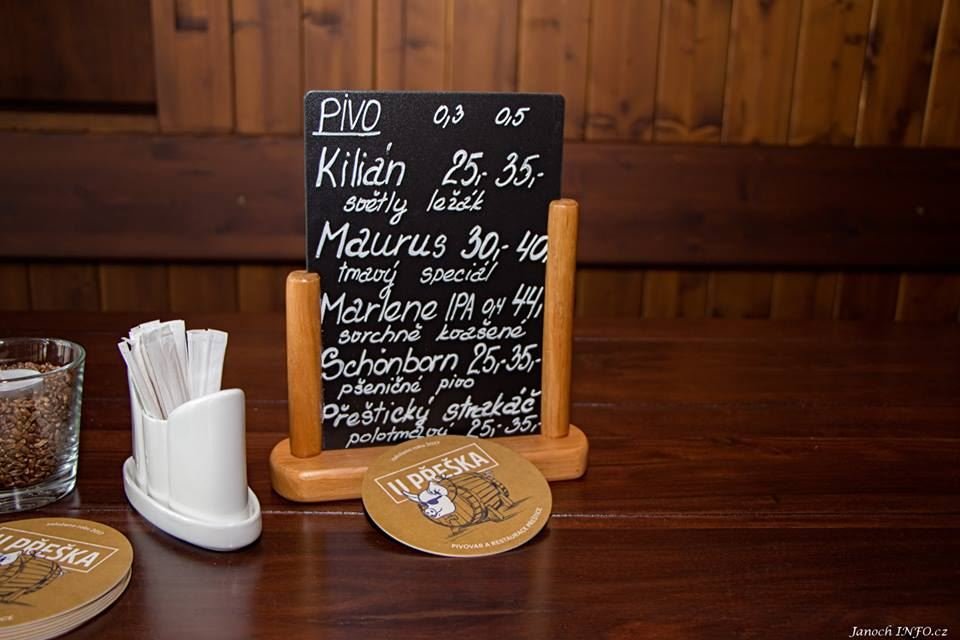 PIVO 0,3 0,5
Kilián 25,- 35,-
světlý ležák
Maurus 30,- 40,
tmavý speciál
Marlene IPA 0,4 44,-
svrchně kvašené
Schönborn 25,- 35,-
pšeničné pivo
Přeštický strakáč
polotmavý 25,- 35,-
založeno roku 2017
U PŘEŠKA
PIVOVAR A RESTAURACE PŘEŠTICE
založeno roku 2017
U PŘEŠKA
Janoch INFO.cz